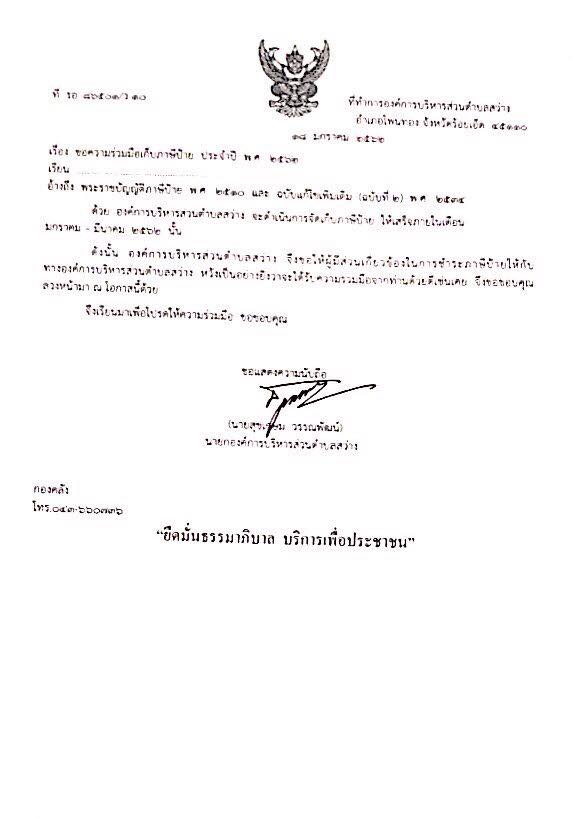 ที่ รอ ๘๖๕๐๑/ว ๑๐
ที่ทำการองค์การบริหารส่วนตำบลสว่าง
อำเภอโพนทอง จังหวัดร้อยเอ็ด ๔๕๑๑๐
๑๘ มกราคม ๒๕๖๒
เรื่อง ขอความร่วมมือเก็บภาษีป้าย ประจำปี พ.ศ. ๒๕๖๒
เรียน ........................................
อ้างถึง พระราชบัญญัติภาษีป้าย พ.ศ. ๒๕๑๐ และ ฉบับแก้ไขเพิ่มเติม (ฉบับที่ ๒) พ.ศ. ๒๕๓๔
ด้วย องค์การบริหารส่วนตำบลสว่าง จะดำเนินการจัดเก็บภาษีป้าย ให้เสร็จภายในเดือน
มกราคม - มีนาคม ๒๕๖๒ นั้น
ดังนั้น องค์การบริหารส่วนตำบลสว่าง จึงขอให้ผู้มีส่วนเกี่ยวข้องในการชำระภาษีป้ายให้กับ
ทางองค์การบริหารส่วนตำบลสว่าง หวังเป็นอย่างยิ่งว่าจะได้รับความร่วมมือจากท่านด้วยดีเช่นเคย จึงขอขอบคุณ
ล่วงหน้ามา ณ โอกาสนี้ด้วย
จึงเรียนมาเพื่อโปรดให้ความร่วมมือ ขอขอบคุณ
ขอแสดงความนับถือ
(นายสุขเกษม วรรณพัฒน์)
นายกองค์การบริหารส่วนตำบลสว่าง
กองคลัง
โทร.๐๔๓-๖๖๐๗๓๖
“ยึดมั่นธรรมาภิบาล บริการเพื่อประชาชน”